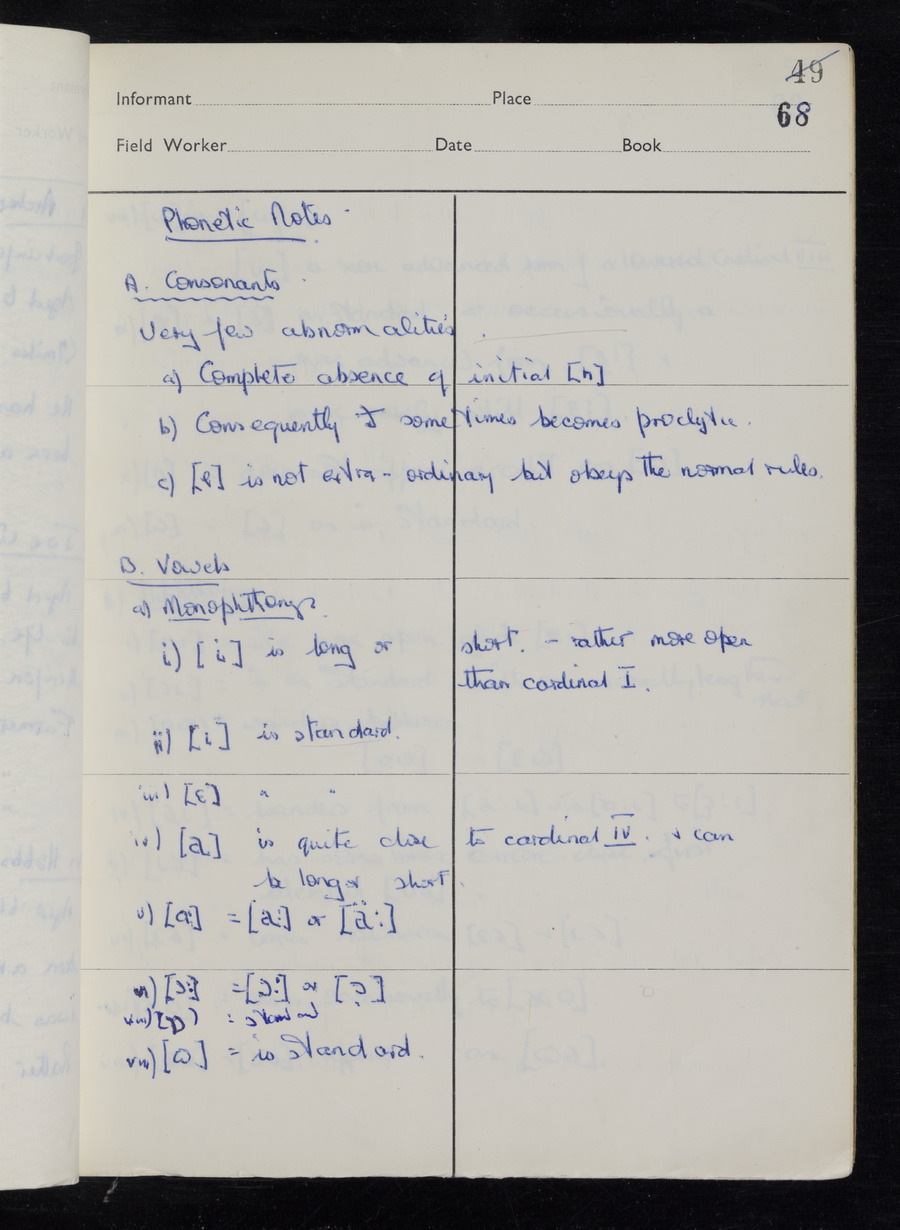 49
68
Informant Place
Field Worker Date Book
Phonetic Notes
A. Consonants
Very few abnormalities
a) Complete absence of initial [h]
b) Consequently sometimes becomes proclytic.
c) is not extra-ordinary but obeys the normal rules.
B. Vowels
a) Monophthongs
i) [i:] is long or short. - rather more open
than cardinal I.
ii) [i] is standard.
iii) [ɛ] " "
iv) [a] is quite close to cardinal IV. & can
be long or short.
v) [ɑ:] = [a:] or [ä:]
vi) [ɔ:] = [ɔ:] or
vii) [ɒ] = standard
viii) [ω] = is standard.